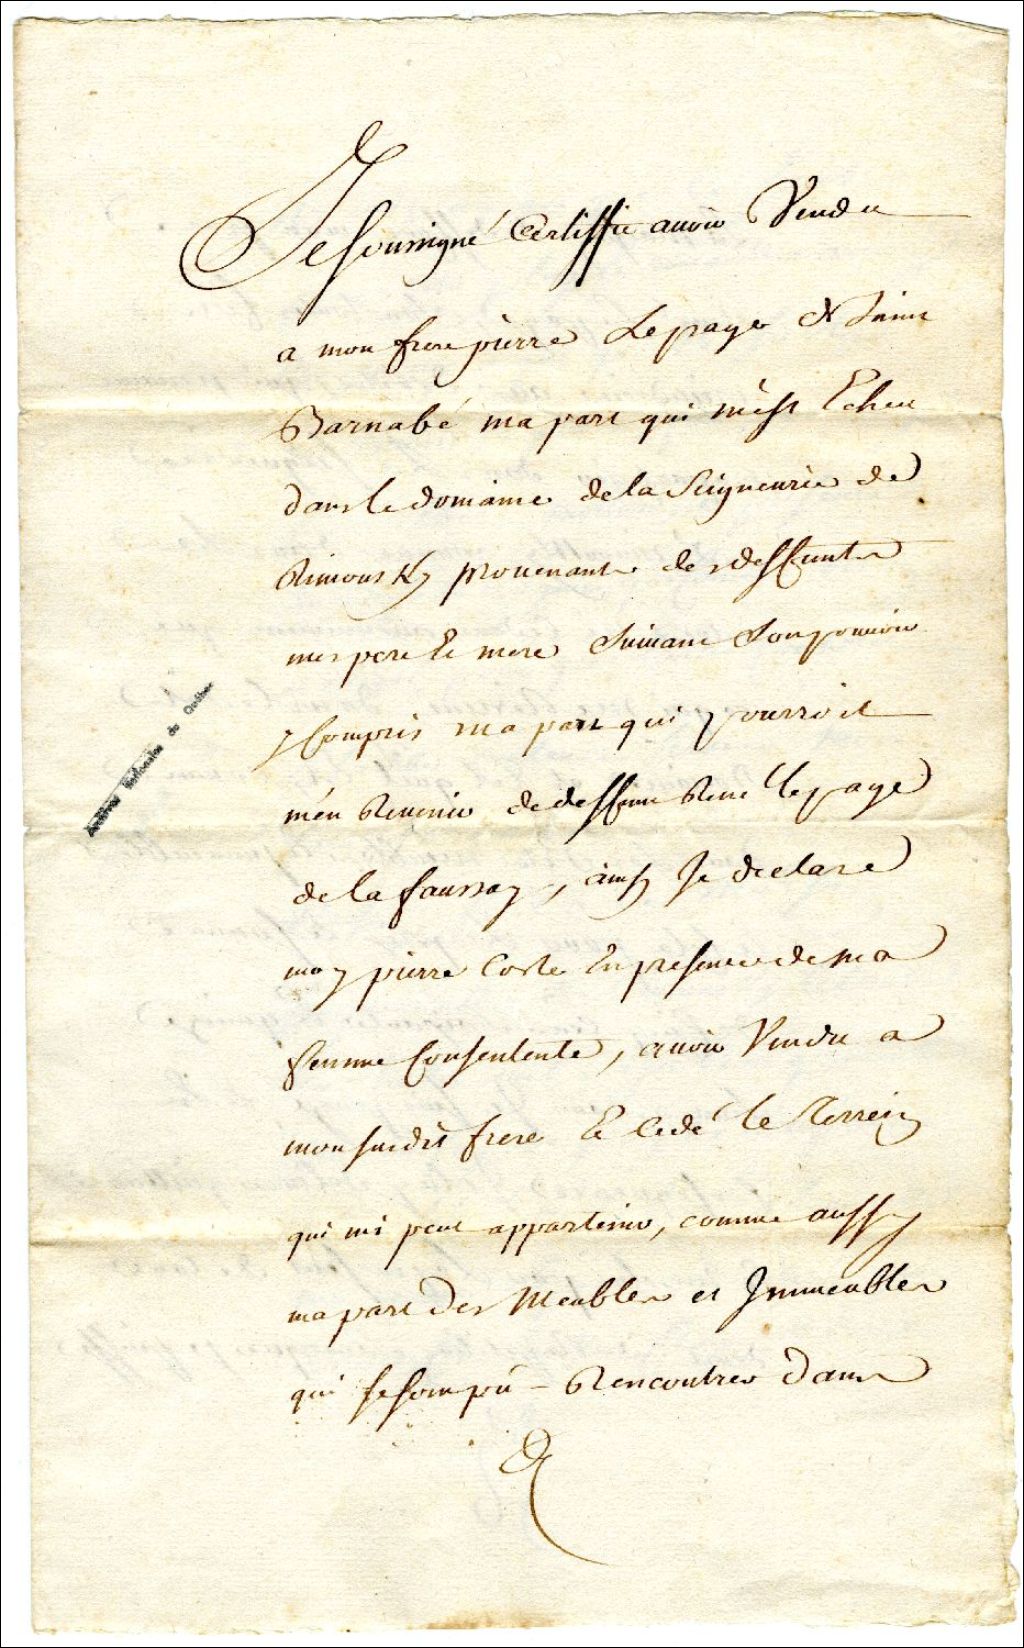 Je soussigné Certiffie auoir Vendu
a mon frere pierre Lepage St Barnabé
Barnabé ma part qui m'est Echeu
dans le domaine de la Seigneurie de
Rimousky prouenante des deffunts
mes pere Et mere Suiuant
y Compris ma part qui pourroit
m'en Reuenir de deffunt Rene lepage
de la faussay, ainsy Je declare
moy pierre Coste En presence de ma
femme Consentente, auoir Vendu a
mon sudit frere Et Cedé le Terrein
qui mi peut appartenir, comme aussy
ma part Des Meubles et Immeubles
qui se sont pu - Rencontrer Dans
Archives nationales du Québec